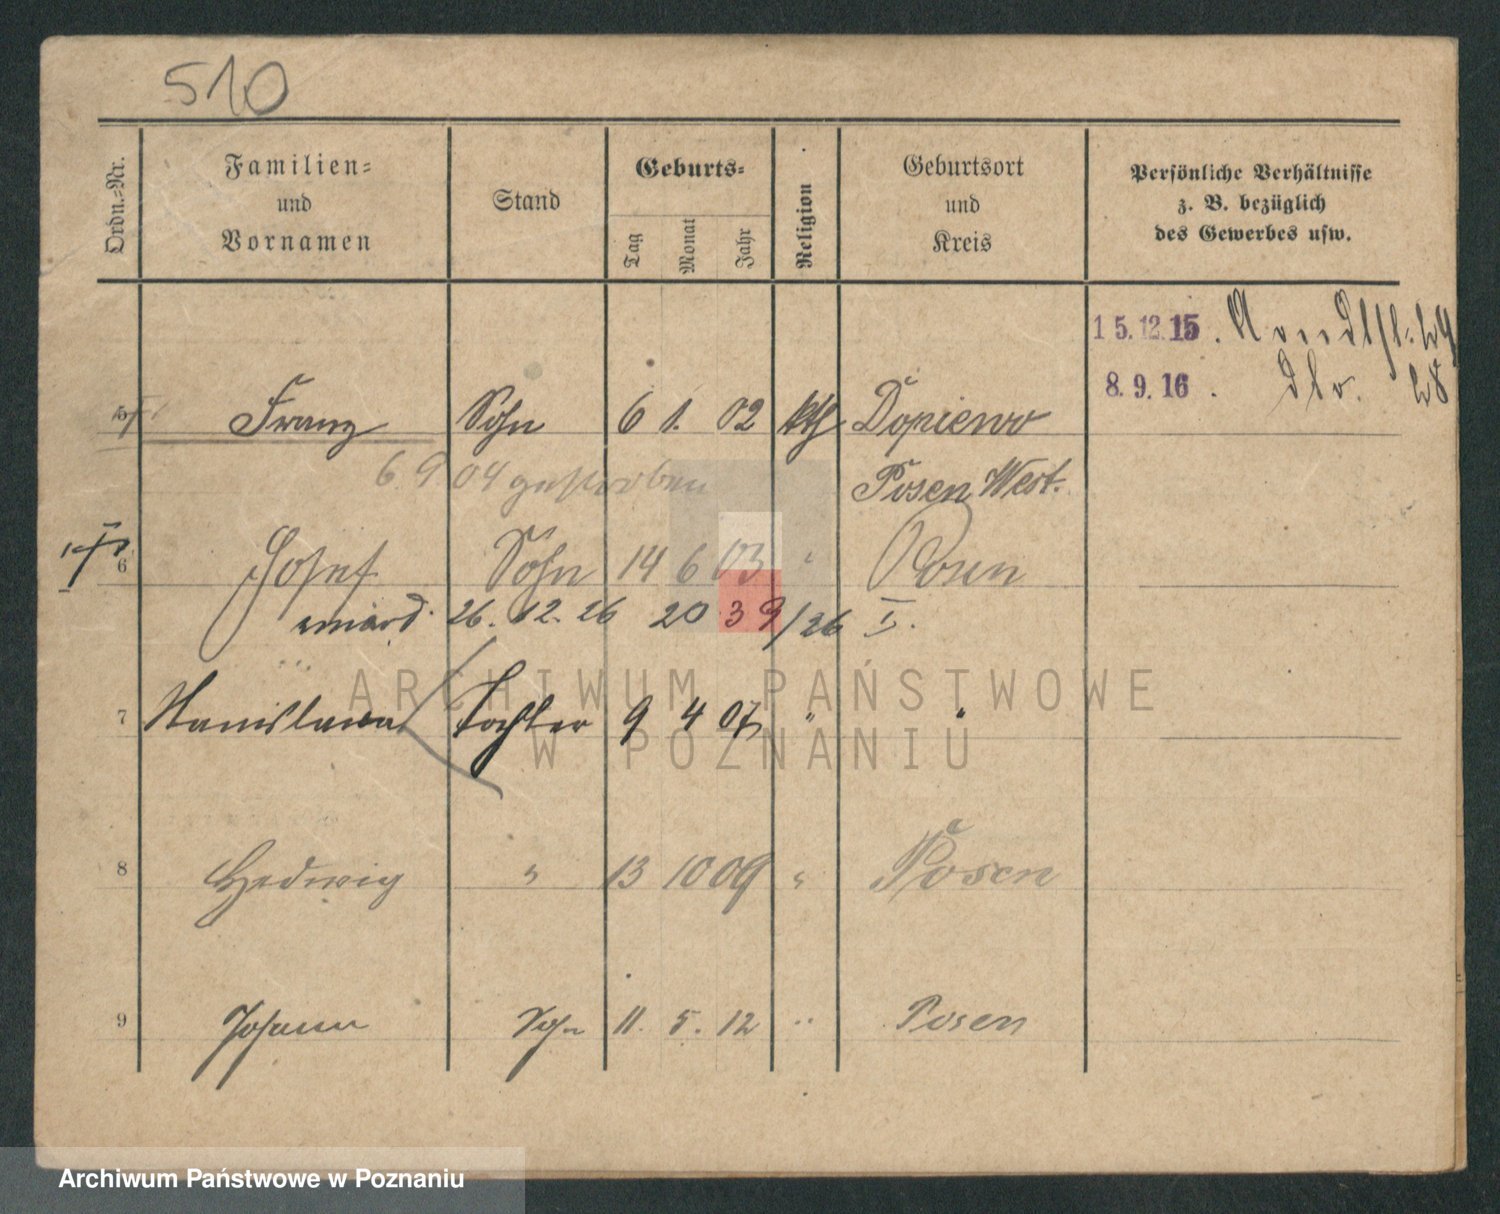 510
Ordn.-Nr.
Familien-
und
Vornamen
Stand
Geburts-
Tag
Monat
Jahr
Religion
Geburtsort
und
Kreis
Persönliche Verhältnisse
z. B. bezüglich
des Gewerbes usw.
15.12.15.
8.9.16.
5 Franz Sohn 6 1. 02 kth Dopiewo
6 9 04 gestorben Posen West.
6 Josef Sohn 14 6 03 " Posen
26. 12. 26 20 39/26 I.
7 Stanislawa Tochter 9 4 07 " "
8 Hedwig " 13 10 09 " Posen
9 Johann Sohn 11. 5. 12 " Posen
ARCHIWUM PAŃSTWOWE
W POZNANIU
Archiwum Państwowe w Poznaniu